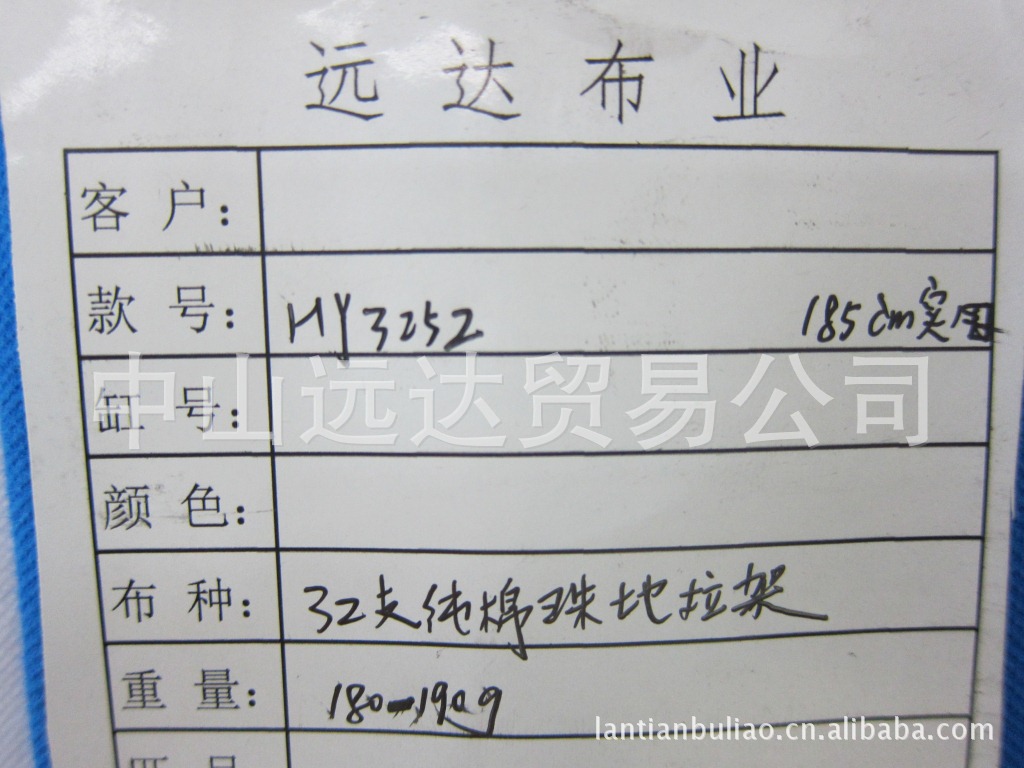 远达布业
客户：
款号： HY3252 185cm实用
缸号：
中山远达贸易公司
颜色：
布种： 32支纯棉珠地拉架
重量： 180-190g
lantianbuliao.cn.alibaba.com